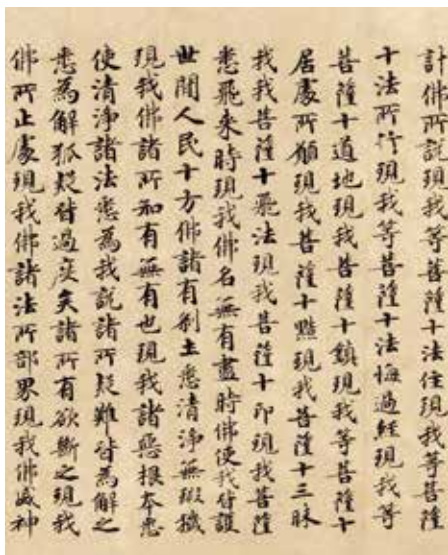 計佛所説現我等菩薩十法住現我等菩薩
十法所行現我等菩薩十法悔過經現我等
菩薩十道地現我菩薩十鎮現我等菩薩十
居處所願現我菩薩十黠現我菩薩十三昧
我我菩薩十飛法現我菩薩十印現我菩薩
悉飛来時現我佛名無有盡時佛使我皆護
世間人民十方佛諸有刹土悉清淨無瑕穢
現我佛諸所知有無有也現我諸惡根本悉
使清淨諸法悉為我説諸所疑難皆為解之
悉為解狐疑皆過度矣諸所有欲斷之現我
佛所止處現我佛諸法所部界現我佛威神